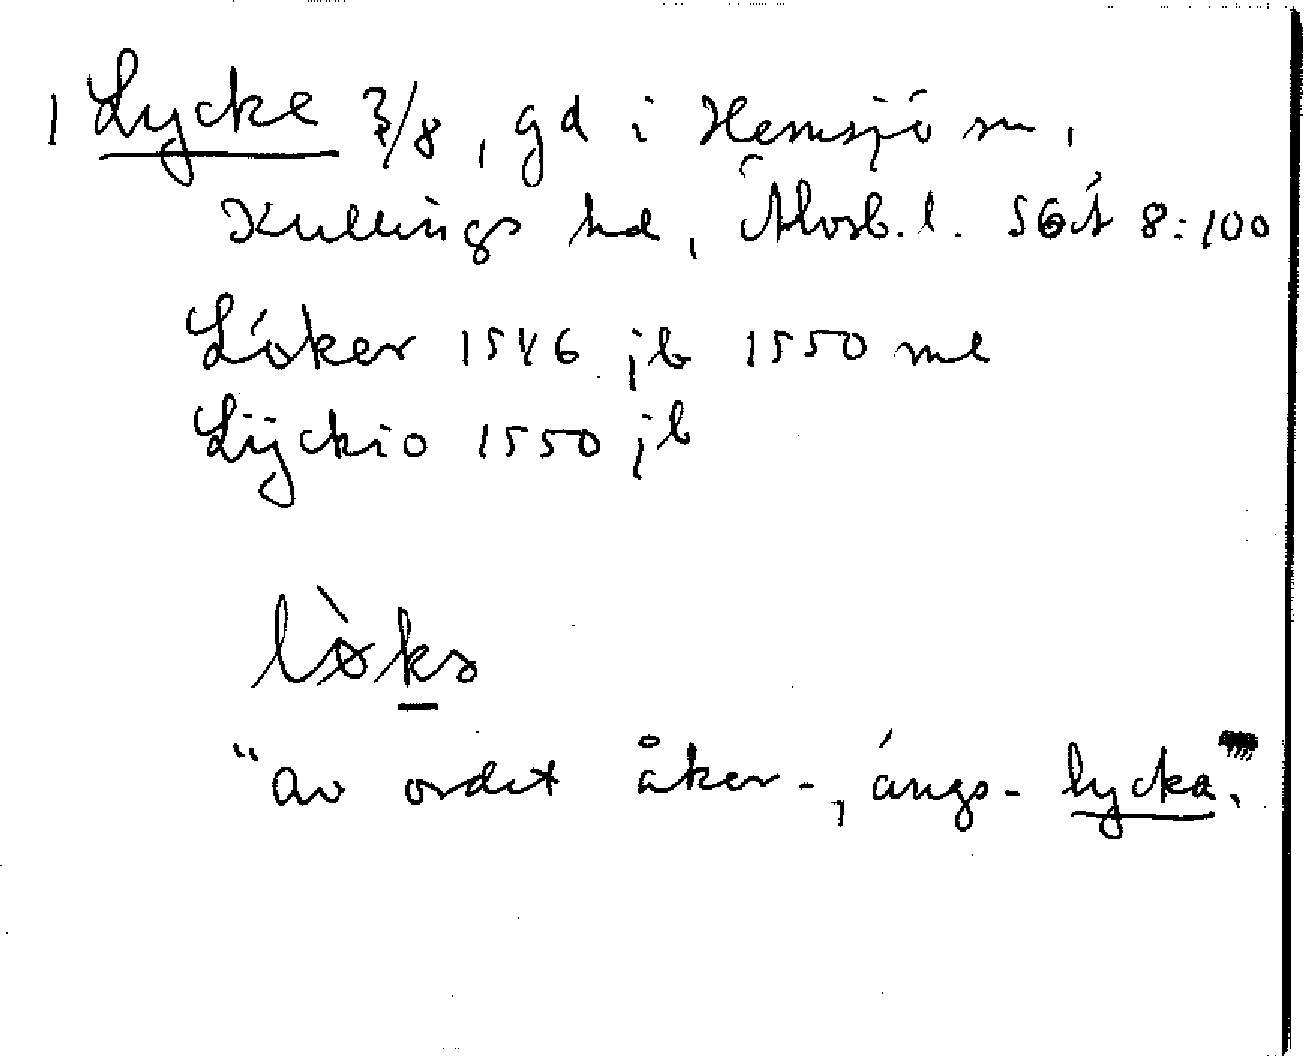 1 Lycke 3/8, gd i Hemsjö sn,
Kullings hd, Älvsb. l. SGÄ 8:100
Löker 1546 jb 1550 ml
Lÿckio 1550 jb
lø̀kə
"av ordet åker-, ängs- lycka."